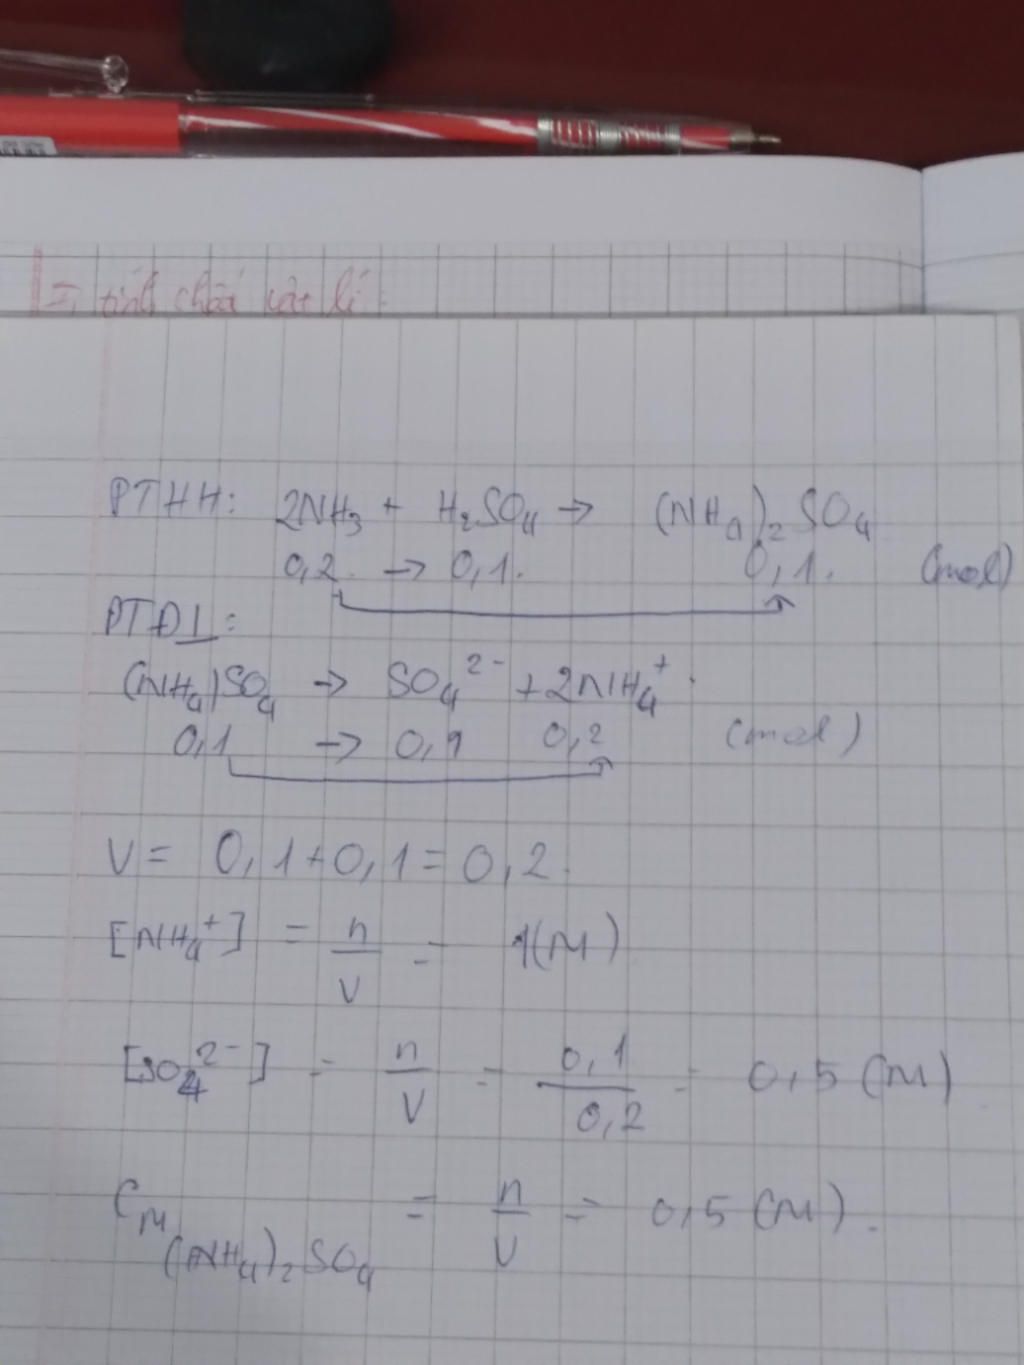 = tính chất vật lí:
PTHH: 2NH₃ + H₂SO₄ → (NH₄)₂SO₄
0,2. → 0,1. 0,1. (mol)
PTĐI:
(NH₄)SO₄ → SO₄²⁻ + 2NH₄⁺.
0,1 → 0,1 0,2 (mol)
V = 0,1+0,1 = 0,2.
[NH₄⁺] = n/V = 1(M)
[SO₄²⁻] = n/V = 0,1/0,2 = 0,5 (M)
C_M (NH₄)₂SO₄ = n/V = 0,5 (M).